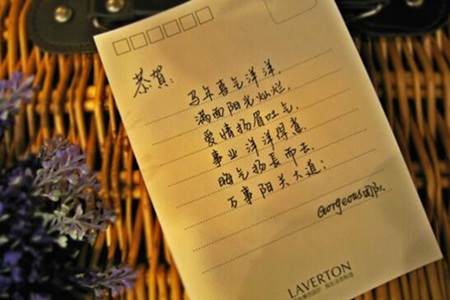 恭贺:
马年喜气洋洋,
满面阳光灿烂,
爱情扬眉吐气,
事业洋洋得意,
晦气扬长而去,
万事阳关大道!
Gorgeous团队.
LAVERTON